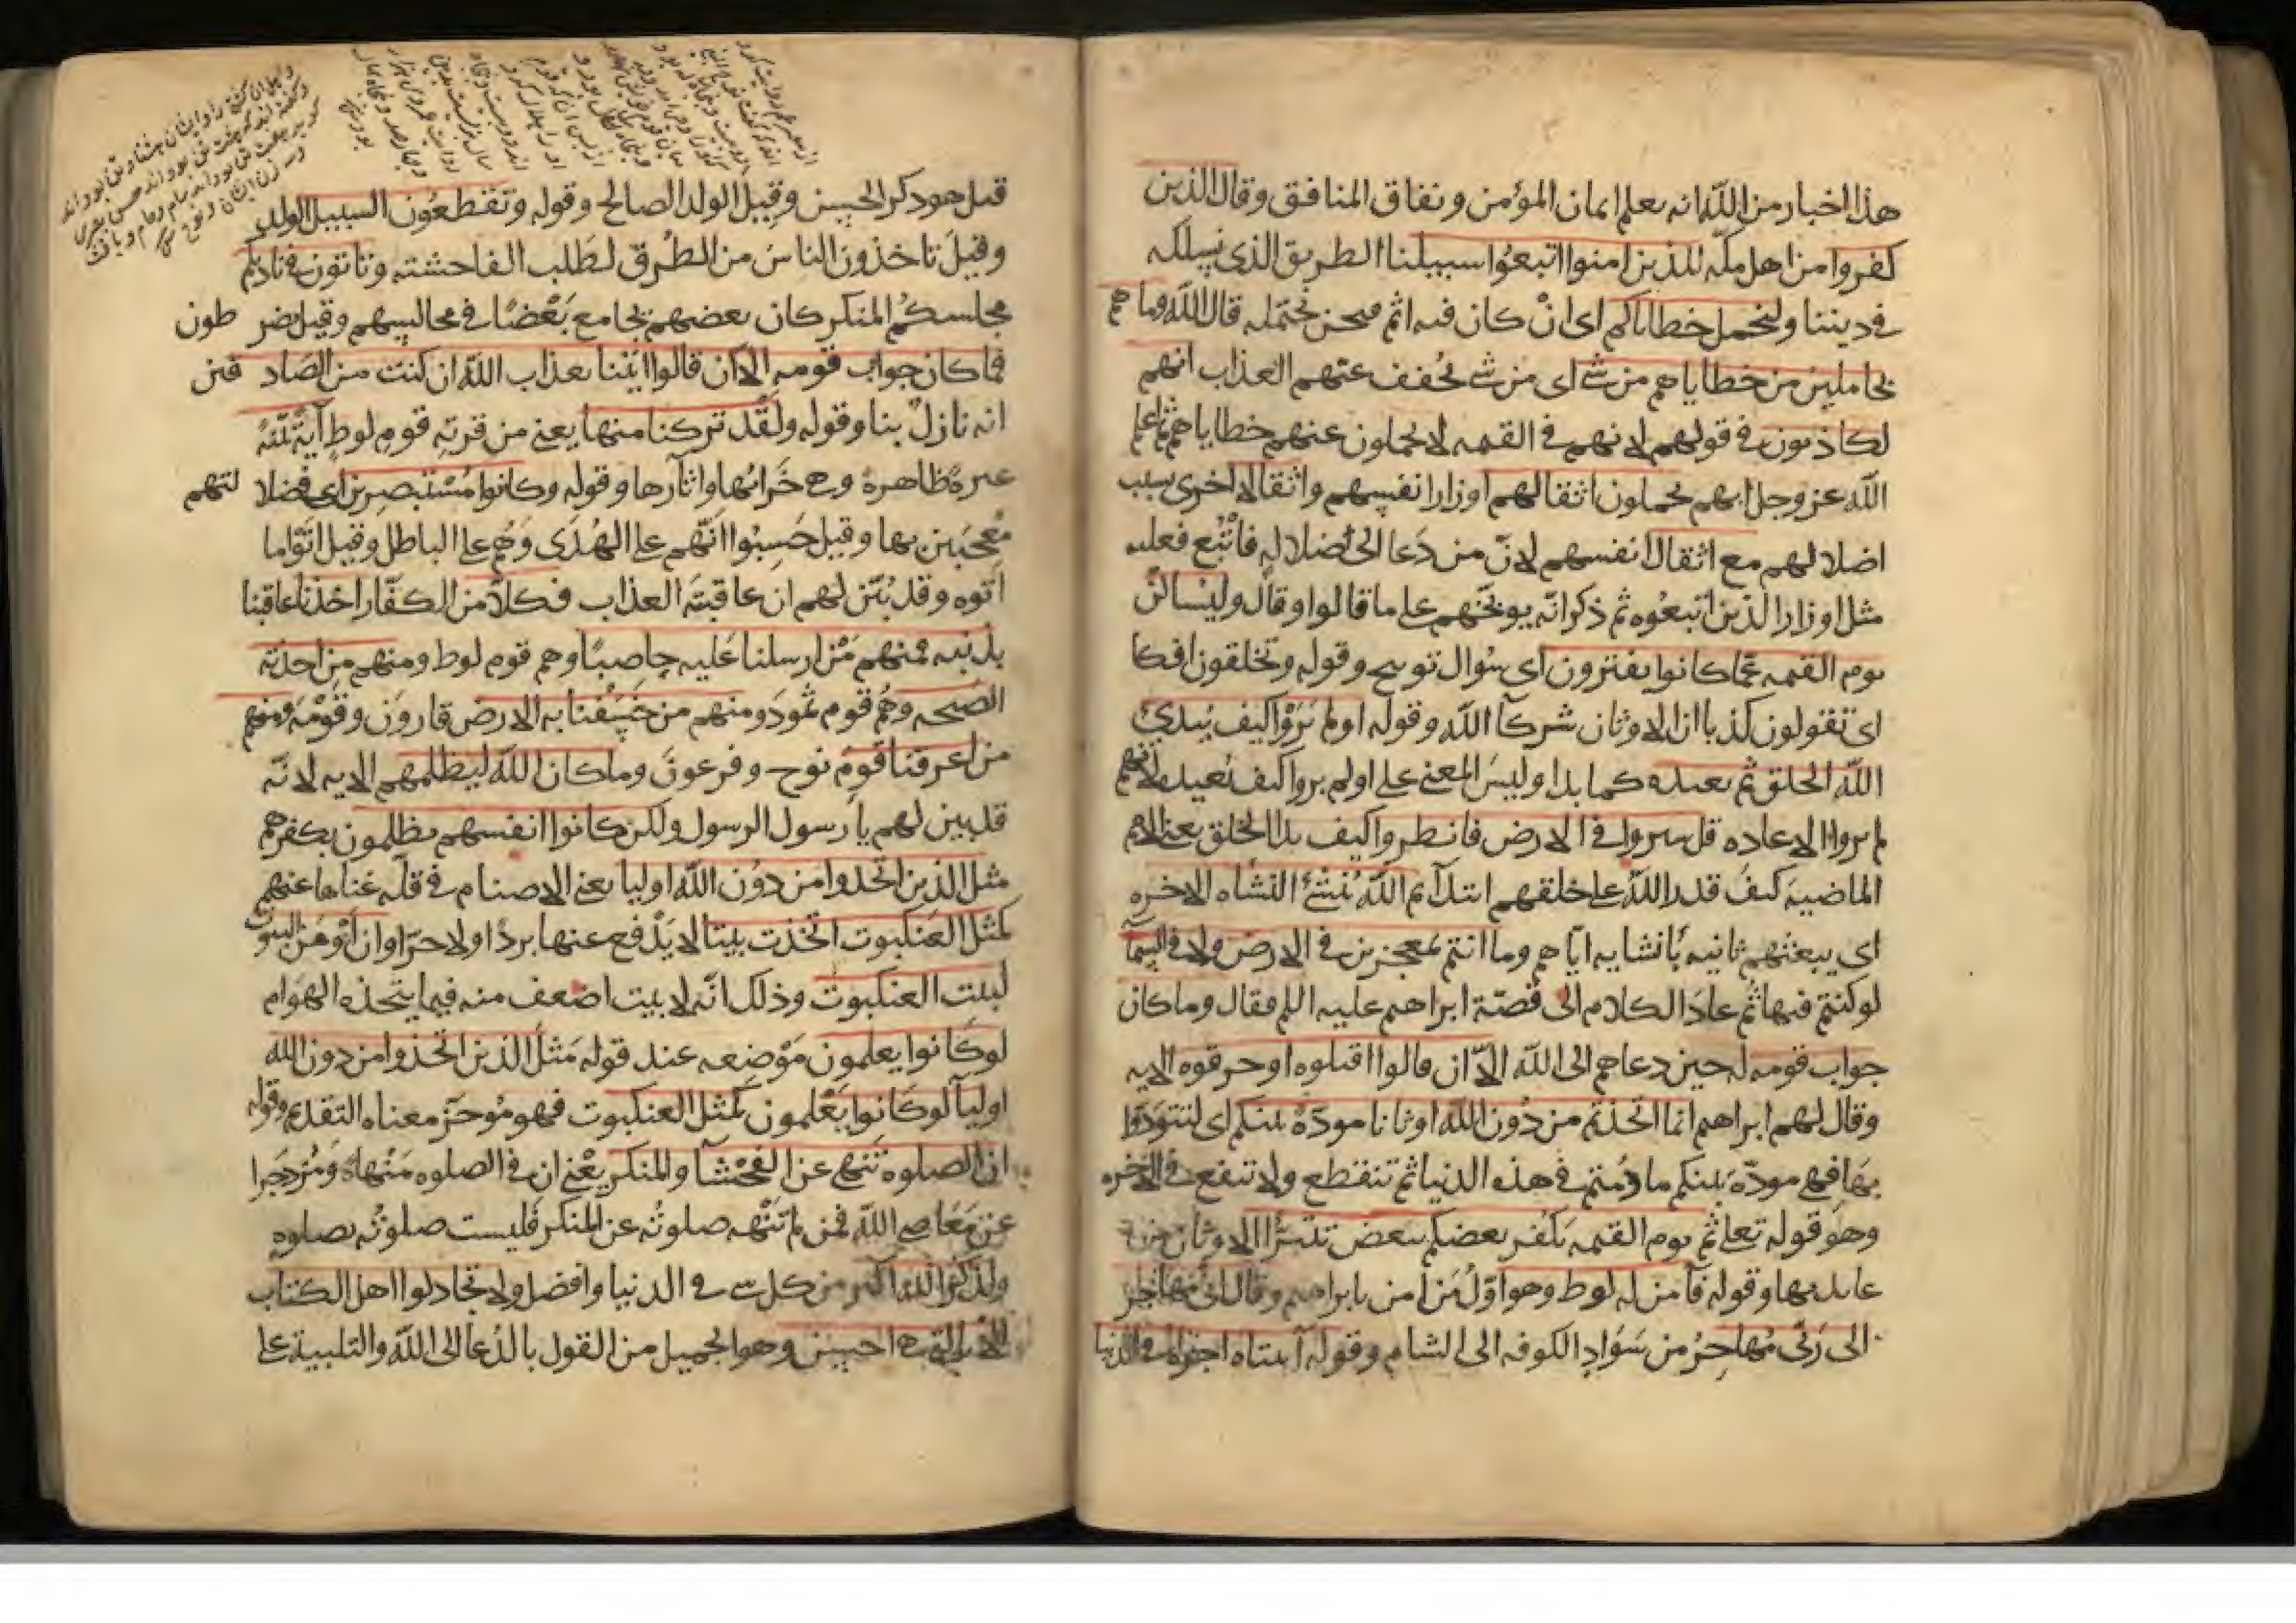 هذا اخبار من الله انه يعلم ايمان المؤمن ونفاق المنافق وقال الذين
كفروا من اهل مكه للذين امنوا اتبعوا سبيلنا الطريق الذي نسلكه
في ديننا ولنحمل خطاياكم اى انْ كان فيه اثم فنحن نحتمله قال الله وما هم
بحاملين من خطاياهم من شي اى من شي يخفف عنهم العذاب انهم
لكاذبون في قولهم لانهم في القيمه لا يحملون عنهم خطاياهم ثم اعلم
الله عز وجل انهم يحملون اثقالهم اوزار انفسهم واثقالا اخرى بسبب
اضلالهم مع اثقال انفسهم لانّ من دَعا الى ضلاله فاتُّبع فعليه
مثل اوزار الذين اتبعُوه ثم ذكر انّه يوبخهم على ما قالوا وقال وليُسالنّ
يوم القيمه عمّا كانوا يفترون اى سُوال توبيح وقوله وتخلقون افكا
اى تقولون كذبا ان الاوثان شركآ الله وقوله اولم يَرَوْا كيف يُبدئ
الله الخلق ثم يعيده كما بدا وليسَ المعنى على اولم يروا كيف يُعيده لانهم
لم يروا الاعاده قل سيروا في الارض فانظروا كيف بدا الخلق يعنى الامم
الماضيه كيفَ قدر الله على خلقهم ابتدآ ثم اللهُ يُنشئ النشاه الاخره
اى يبعثهم ثانيه بانشايه ايّاهم وما انتم بمعجزين في الارض ولا في السمآ
لو كنتم فيها ثم عادَ الكلام الى قصّة ابراهيم عليه اللم فقال وما كان
جواب قومه له حين دعاهم الى الله الّا ان قالوا اقتلوه او حرقوه الايه
وقال لهم ابراهيم انما اتخذتم من دُون الله اوثانا مودّةً بينكم اى لتتوَدّوا
بهَا فهي مودّه بَينكم ما دُمتم في هذه الدنيا ثم تنقطع ولا تنفع في الاخره
وهوَ قوله تعلى ثم يوم القيمه يَكفر بعضكم ببعض تتبرّا الاوثان من
عابديها وقوله فآمن له لوط وهو اوّلُ مَن امن بابراهيم وقال انى مهاجر
الى رَبّى مُهاجِرٌ من سَوَادِ الكوفه الى الشام وقوله آتيناه اجره في الدنيا
قبل هو ذكر الحسن وقيل الولد الصالح وقوله وتقطعُون السبيل الولد
وقيلَ تاخذون الناسَ من الطُرق لطَلب الفاحشته وتاتون في ناديكم
مجلسكُم المنكر كان بعضهم يجامع بَعْضًا في مجالسهم وقيل يضر طون
فما كان جوابَ قومه الا ان قالوا ائتنا بعذاب الله ان كنت من الصَاد قين
انه نازلٌ بنا وقوله ولقَد تركنا منها يعنى من قريَهِ قومِ لوطٍ آيةً بَيّنَةً
عبرةً ظاهرة وهى خَرَابُها واثآرها وقوله وكانوا مُسْتَبصِرين اى فضلا لتهم
مُعجَبين بها وقيل حَسِبُوا انّهم على الهُدَى وَهُم على الباطل وقيل اتَوْا ما
اتوه وقد بُيّن لهم ان عاقبتَه العذاب فكلّا من الكفّار اخذنا عاقبنا
بذنبه فمنهم مَنْ ارسلنا عَليه حاصبًا وهم قوم لوط ومنهم مِن اخذته
الصّيحه وهُم قوم ثمودَ ومنهم من خسَفنا به الارض قارونَ وقَوْمَه ومنهم
من اغرقنا قومَ نوح وفرعونَ وما كان الله ليظلمهم الايه لانّه
قد بين لهم بارسول الرسول ولكن كانوا انفسهم يظلمون بكفرهم
مثل الذين اتخذوا من دوُن الله اوليا يعنى الاصنام في قلّه غناها عنهم
كمثل العَنكبوت اتخذت بيتا لا يَدْفع عنها بردًا ولا حرّا وان اَوْهَن البيوت
لبيت العنكبوت وذلك انّه لا بيت اضعف منه فيما يتخذه الهوَام
لو كانوا يعلمون مَوْضِعه عند قوله مَثلُ الذين اتخذوا من دون الله
اوليآ لو كانوا يَعْلمون كمَثل العنكبوت فهو مُوَخرٌ معناه التقديم وقوله
ان الصلوه تَنهى عن الفَحْشآ والمنكر يَعْني ان في الصلوه مَنْهاةً وَمُزدَجَرا
عن مَعَاصى الله فمن لم تَنْهَه صلوتُه عن المنكر فليست صلوتُه بصلوهٍ
ولذكرُ الله اكبر من كل شى في الدنيا وافضل ولا تجادلوا اهل الكتاب
الا بالتى هى احسن وهو الجميل من القول بالدُعا الى الله والتلبية على